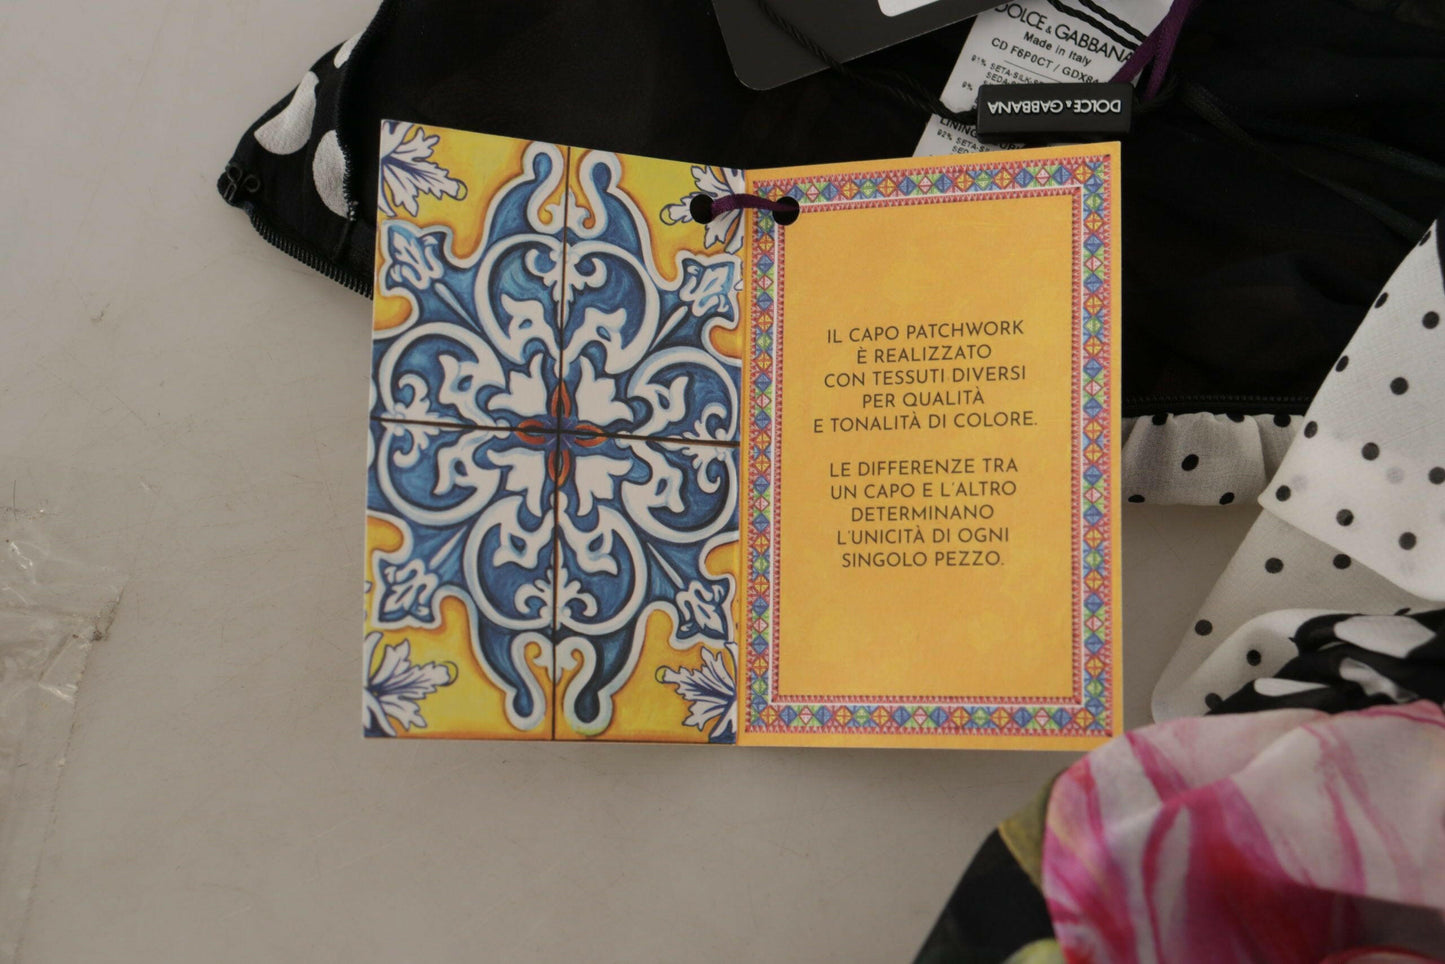 DOLCE & GABBANA
Made in Italy
CD F6P0CT / GDX8
91% SETA-SILK-S
9%
LINING
92% SETA-SILK
DOLCE & GABBANA
IL CAPO PATCHWORK
È REALIZZATO
CON TESSUTI DIVERSI
PER QUALITÀ
E TONALITÀ DI COLORE.
LE DIFFERENZE TRA
UN CAPO E L'ALTRO
DETERMINANO
L'UNICITÀ DI OGNI
SINGOLO PEZZO.